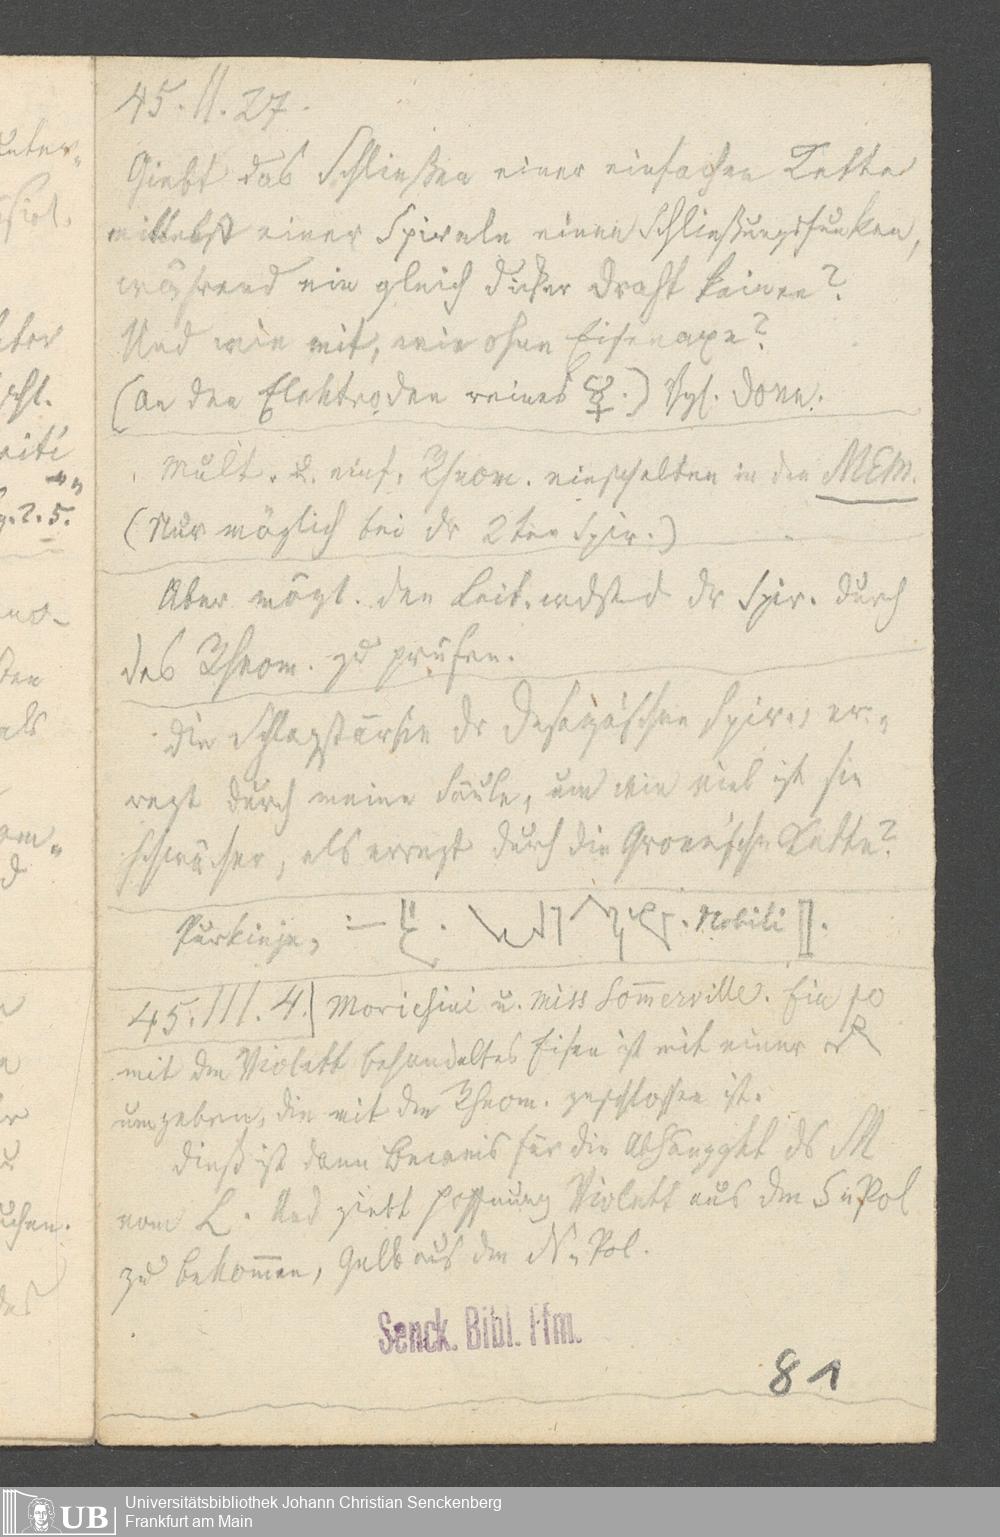 45. II. 27.
Giebt das Schließen einer einfachen Kette
mittelst einer Spirale einen Schließungsfunken,
während ein gleich dicker Draht keinen?
Und wie mit, wie ohne Eisenaxe?
(An den Elektroden reines ☿.) Vgl. Dove.
Mult. u. einf. Rheom. einschalten in den MEM.
(Nur möglich bei dr 2ten Spir.)
Aber mögl. den Leit. wdstd dr Spir. durch
das Rheom. zu prüfen.
Die Schlagstärke dr Desagäschen Spir., er-
regt durch meine Säule, um wie viel ist sie
schwächer, als erregt durch die Grove'sche Kette?
Purkinje, Nobili
45. III. 4. Morichini u. Miss Sommerville. Ein
mit dem Violett behandeltes Eisen ist mit einer
umgeben, die mit dem Rheom. geschlossen ist.
Dieß ist dann Beweis für die Abhänggkt ds M
vom L. Und giebt Hoffnung Violett aus dem S=Pol
zu bekommen, Gelb aus dem N=Pol.
Senck. Bibl. Ffm.
81
UB
Universitätsbibliothek Johann Christian Senckenberg
Frankfurt am Main